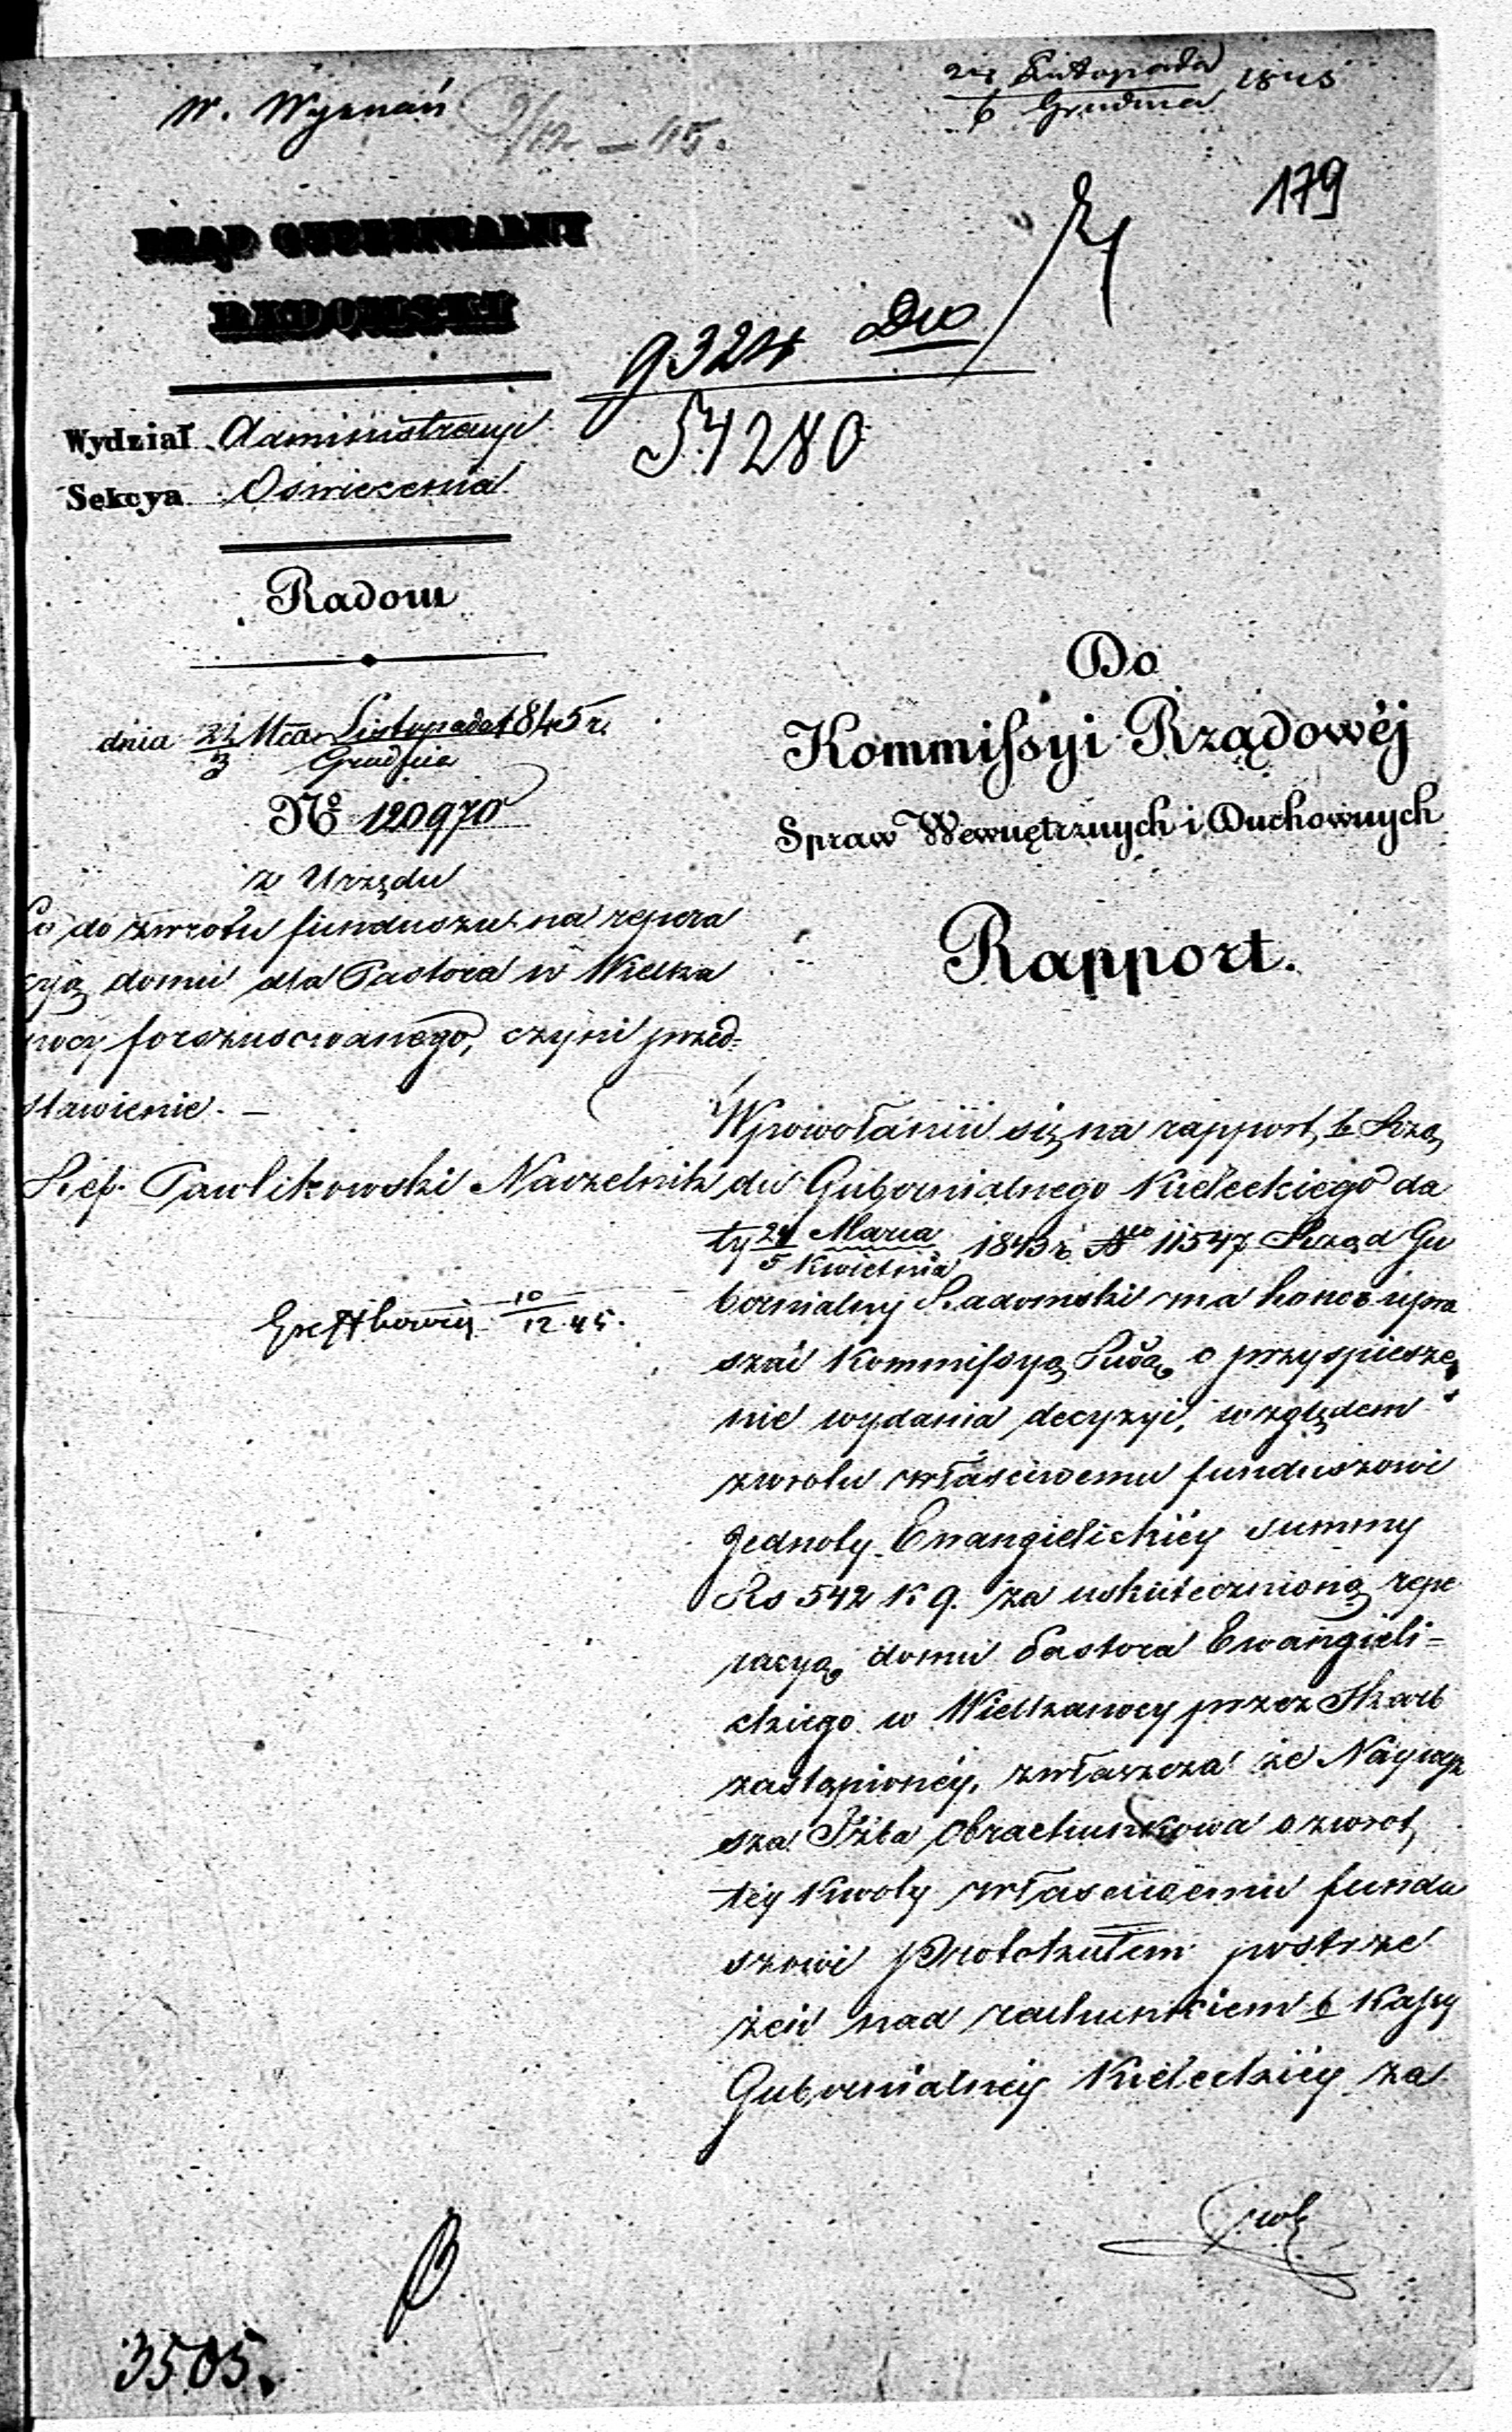 W. Wyznań 9/12 – 45.
24 Listopada
6 Grudnia 1845
179
RZĄD GUBERNIALNY
RADOMSKI
9324 Dw
54280
Wydział Administracyi
Sekcya Oswiecenia
Radom
dnia 21/3 Mca Listopada/Grudnia 1845 r.
No 120970
z Urzędu
Co do zwrotu funduszu na repera
cyą domu dla Pastora w Wielka
nocy forszusowanego, czyni przed=
stawienie. —
Ref. Pawlikowski Naczelnik
10/12 45.
Do
Kommissyi Rządowéj
Spraw Wewnętrznych i Duchownych
Rapport.
W powołaniu się na rapport b. Rzą
du Gubernialnego Kieleckiego da
ty 24 Marca/5 Kwietnia 1843 r. No 11547 Rząd Gu
bernialny Radomski ma honor upra
szać Kommissyą Rdwą o przyspiesze
nie wydania decyzyi, względem
zwrotu właściwemu funduszowi
Jednoty Ewangielickiéy summy
Rs 542 k 9. za uskutecznioną repe
racyą domu Pastora Ewangieli=
ckiego w Wielkanocy przez Skarb
zastąpionéy, zwłaszcza że Naywyż
sza Izba Obrachunkowa o zwrot
téy kwoty właściwemu fundu
szowi Protokułem postrze
żeń nad rachunkiem b. Kassy
Gubernialnéy Kieleckiéy za
3505.